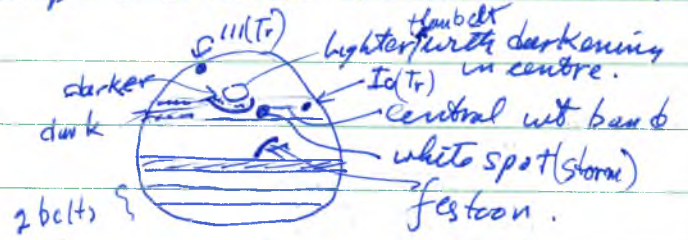 III(Tr)
than belt
lighter with darkening
in centre.
darker
Io(Tr)
dark
central wt band
white spot (storm)
festoon.
2 belts